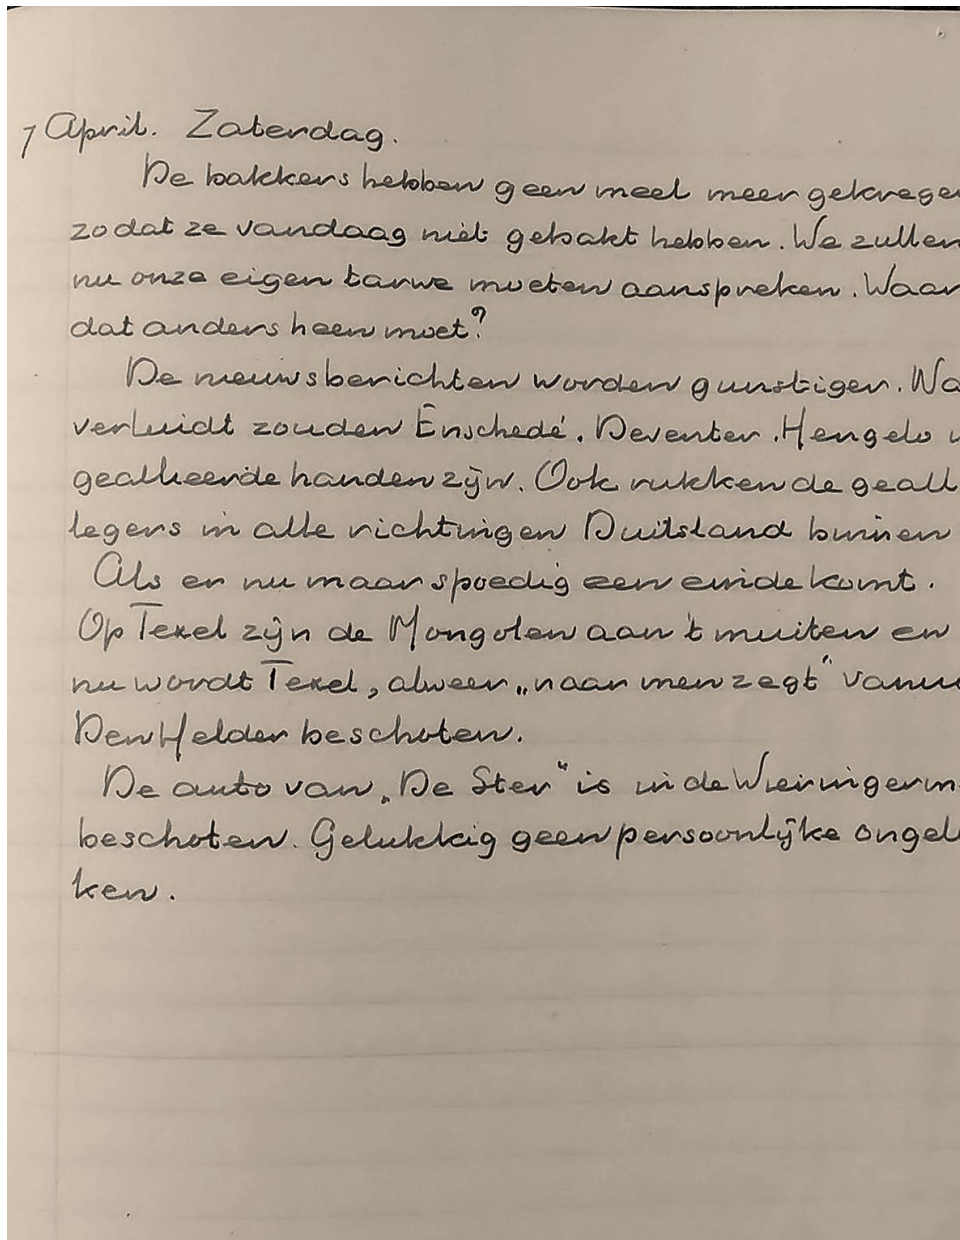 7 April. Zaterdag.
De bakkers hebben geen meel meer gekregen
zodat ze vandaag niet gebakt hebben. We zullen
nu onze eigen tarwe moeten aanspreken. Waar
dat anders heen moet?
De nieuwsberichten worden gunstiger. Na
verluidt zouden Enschedé. Deventer. Hengelo
geallieerde handen zijn. Ook rukken de geall
legers in alle richtingen Duitsland binnen
Als er nu maar spoedig een einde komt.
Op Texel zijn de Mongolen aan 't muiten en
nu wordt Texel, alweer „naar men zegt" vanu
Den Helder beschoten.
De auto van „De Ster" is in de Wieringerm
beschoten. Gelukkig geen persoonlijke ongel
ken.